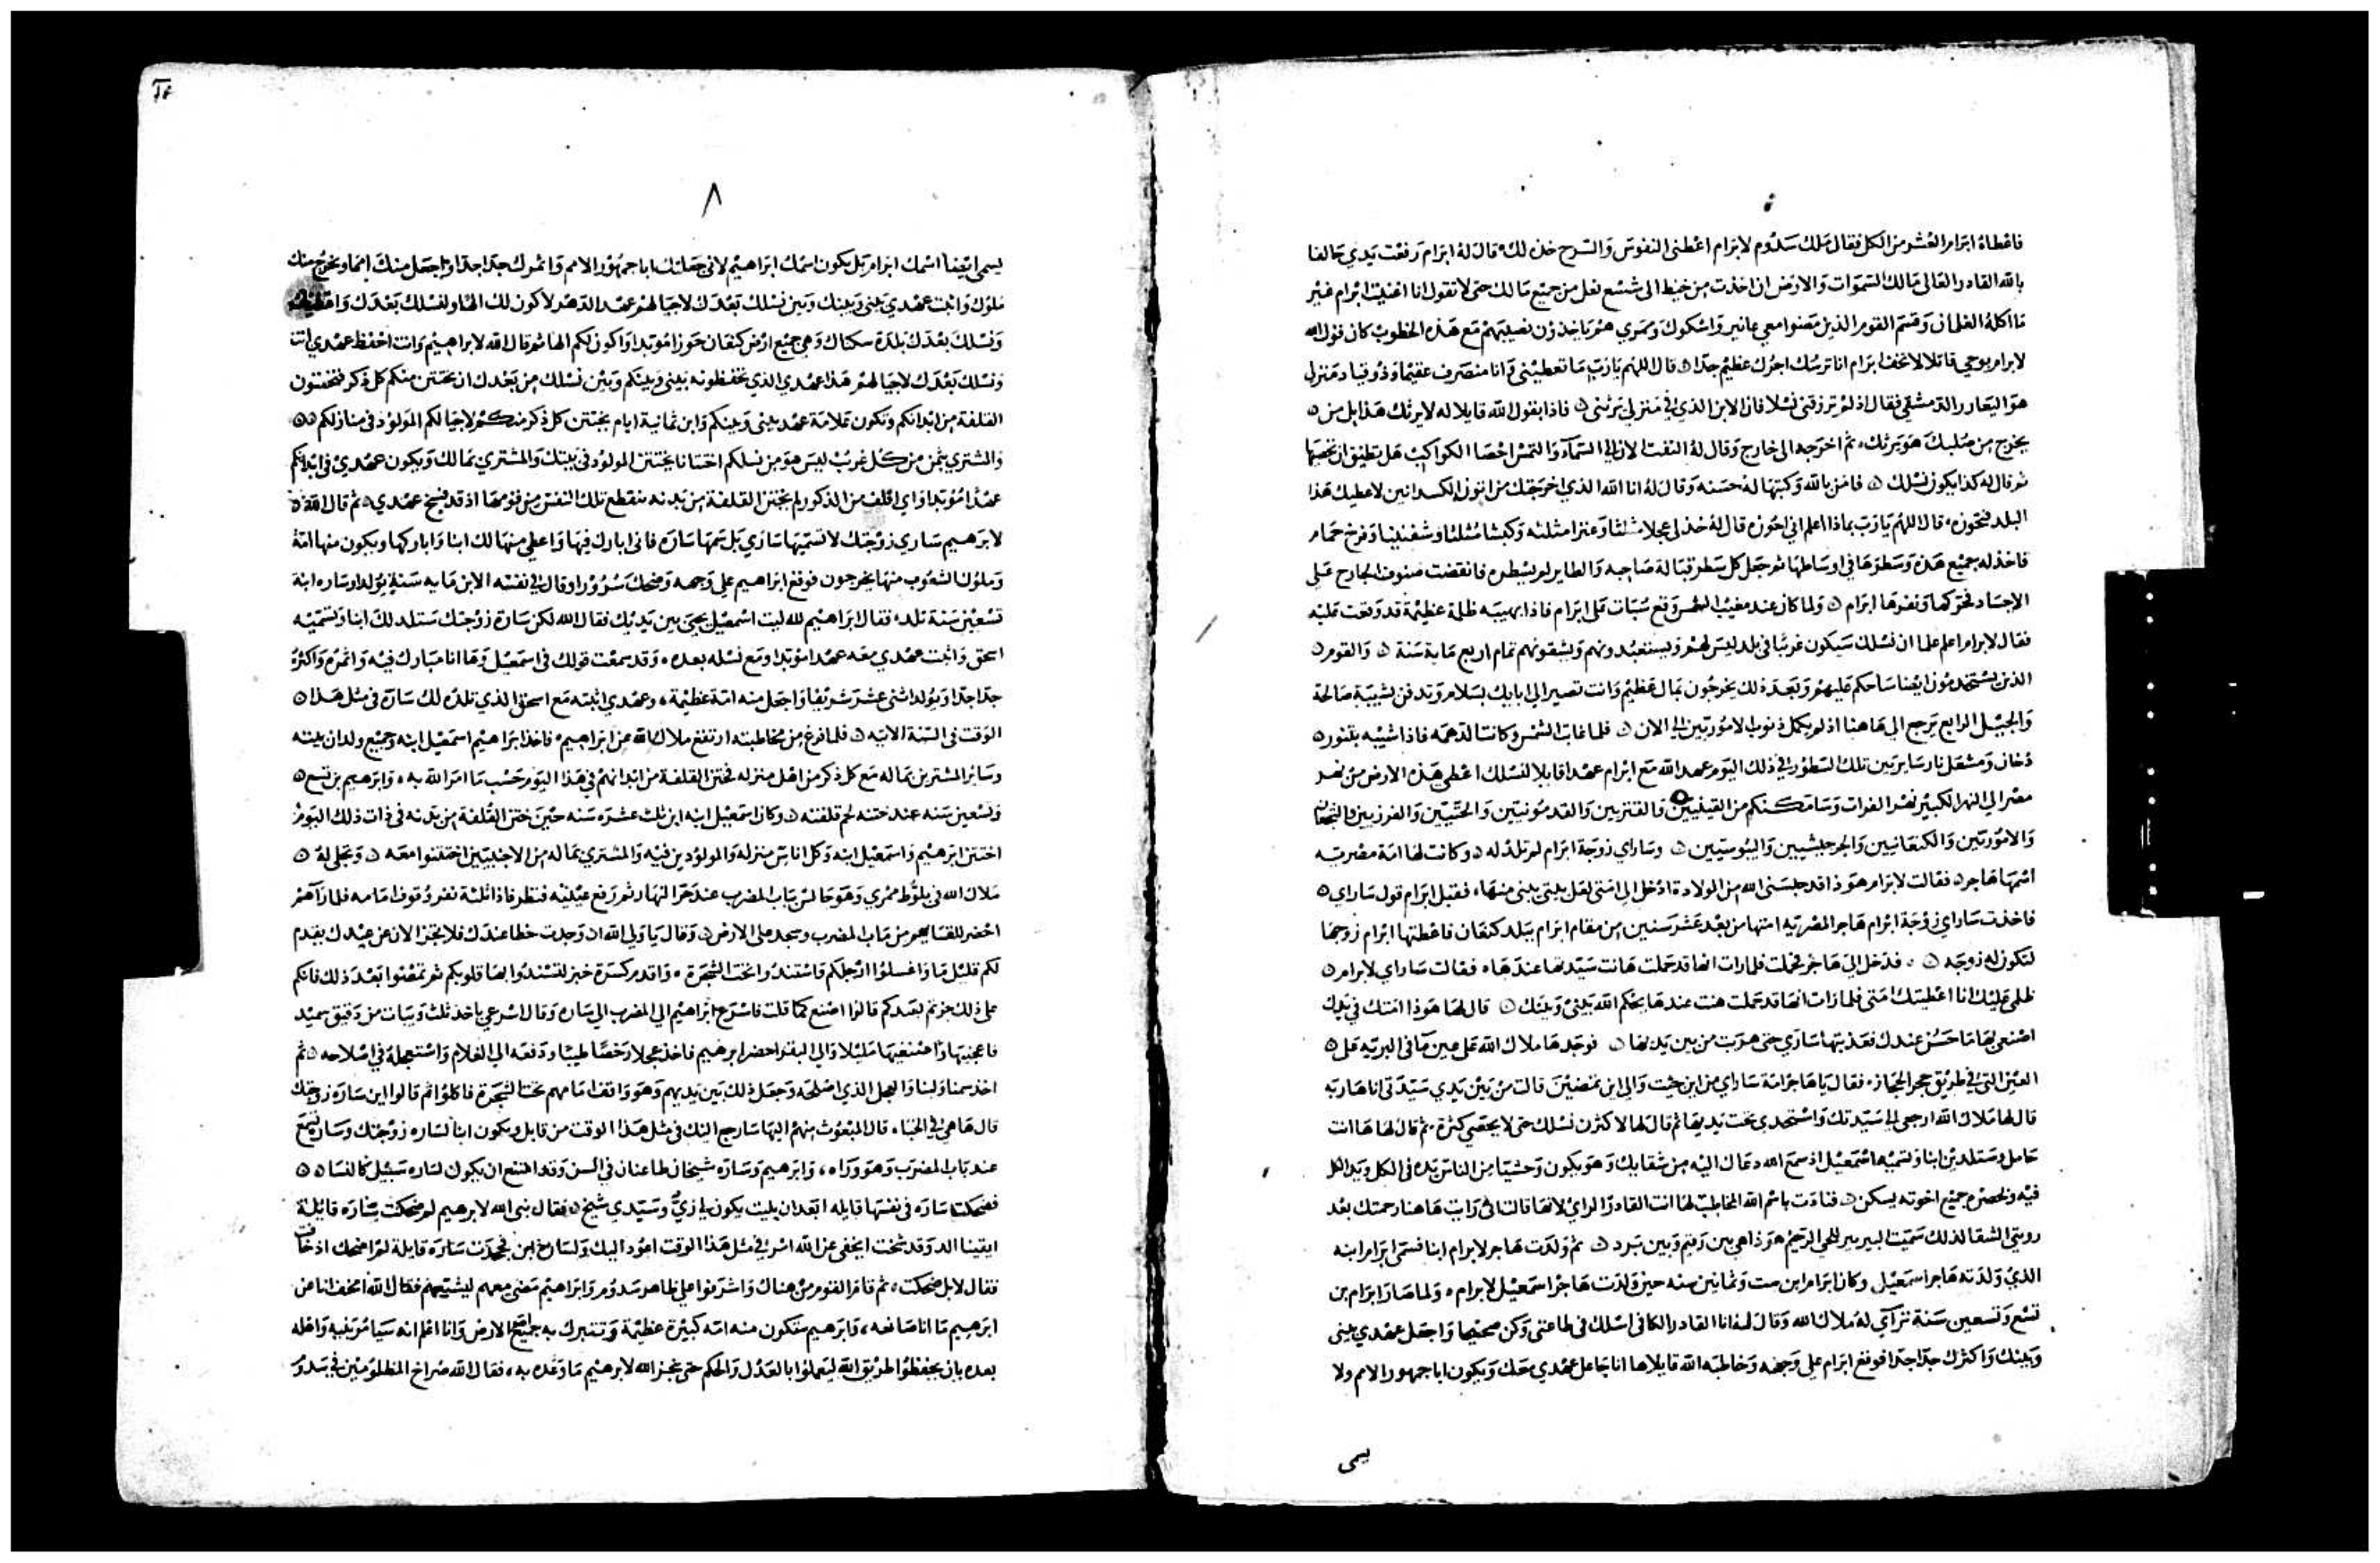 فاعطاه ابرام العشر من الكل فقال ملك سدوم لابرام اعطنى النفوس والسرح خذ لك قال له ابرام رفعت يدي حالفا
بالله القادر العالى مالك السموات والارض ان اخذت من خيط الى شسع نعل من جميع مالك حتى لا تقول انا اغنيت ابرام غير
ما اكله الغلمان وقسم القوم الذين مضوا معي عانير واشكول وممري هم ياخذون نصيبهم مع هذه الخطوب كان قول الله
لابرام بوحي قائلا لا تخف ابرام انا ترسك اجرك عظيم جدا ۞ قال اللهم يارب ما تعطينى وانا منصرف عقيما وذو قياد منزلى
هو اليعازر الدمشقى فقال اذ لم ترزقنى نسلا فاذا الابن الذي فى منزلى يرثنى ۞ فاذا بقول الله قايلا له لا يرثك هذا بل من ۞
يخرج من صلبك هو يرثك ثم اخرجه الى خارج وقال له التفت الان الى السمآء والتمس احصا الكواكب هل تطيق ان تحصيها
ثم قال له كذا يكون نسلك ۞ فامن بالله وكتبها له حسنه وقال له انا الله الذي اخرجتك من اتون الكسدانيين لاعطيك هذا
البلد فتحوزه قال اللهم يارب بماذا اعلم اني احوزه قال له خذ لى عجلا مثلثا وعنزا مثلثه وكبشا مثلثا وشفنينا وفرخ حمام
فاخذ له جميع هذه وسطرها فى اوساطها ثم جعل كل سطر قبالة صاحبه والطاير لم يشطره فانقضت صنوف الجارح على
الاجساد فحركها ونفرها ابرام ۞ ولما كان عند مغيب الشمس وقع سبات على ابرام فاذا بهيبه ظلمة عظيمة قد وقعت عليه
فقال لابرام اعلم علما ان نسلك سيكون غريبا فى بلد ليس لهم ويستعبدونهم ويشقونهم تمام اربع ماية سنة ۞ والقوم ۞
الذين يستخدمون ايضا ساحكم عليهم وبعد ذلك يخرجون بمال عظيم وانت تصير الى ابايك بسلام وتدفن بشيبة صالحة
والجيل الرابع يرجع الى هاهنا اذ لم يكمل ذنوب الاموريين الى الان ۞ فلما غابت الشمس وكانت الدهمه فاذا شبيه بتنور ۞
دخان ومشعل نار ساير بين تلك السطور فى ذلك اليوم عهد الله مع ابرام عهدا قايلا لنسلك اعطى هذه الارض من نهر
مصر الى النهر الكبير نهر الفرات وسامكنكم من القينيين والقنزيين والقدمونيين والحثيين والفرزيين والشجعان
والاموريين والكنعانيين والجرجيشيين واليبوسيين ۞ وساراي زوجة ابرام لم تلد له ۞ وكانت لها امة مصريه
اسمها هاجر ۞ فقالت لابرام هوذا قد حبسنى الله من الولادة ادخل الى امتى لعل يبنى بيتى منها فقبل ابرام قول ساراي ۞
فاخذت ساراي زوجة ابرام هاجر المصريه امتها من بعد عشر سنين من مقام ابرام ببلد كنعان فاعطتها ابرام زوجها
لتكون له زوجه ۞ فدخل الى هاجر فحملت فلما رات انها قد حملت هانت سيدتها عندها فقالت ساراي لابرام ۞
ظلمى عليك انا اعطيتك امتى فلما رات انها قد حملت هنت عندها يحكم الله بينى وبينك ۞ قال لها هوذا امتك فى يدك
اصنعى بها ما حسن عندك فعذبتها ساري حتى هربت من بين يديها ۞ فوجدها ملاك الله على عين مآ فى البريه على ۞
العين التى فى طريق حجر الحجاز فقال يا هاجر امة ساراي من اين جيت والى اين تمضين قالت من بين يدي سيدتى انا هاربه
قال لها ملاك الله ارجعى الى سيدتك واستخدى تحت يديها ثم قال لها لاكثرن نسلك حتى لا يحصى كثرة ثم قال لها ها انت
حامل وستلدين ابنا وتسميه اسمعيل اذ سمع الله دعاك اليه من شقايك وهو يكون وحشيا من الناس يده فى الكل ويد الكل
فيه وبحضره جميع اخوته يسكن ۞ فنادت باسم الله المخاطب لها انت القادر الراي لانها قالت انى رايت هاهنا رحمتك بعد
رويتى الشقا لذلك سميت البير بير للحى الرحيم هوذا هى بين رقيم وبين برد ۞ ثم ولدت هاجر لابرام ابنا فسمى ابرام ابنه
الذى ولدته هاجر اسمعيل وكان ابرام ابن ست وثمانين سنه حين ولدت هاجر اسمعيل لابرام ۞ ولما صار ابرام بن
تسع وتسعين سنة تراآى له ملاك الله وقال له انا القادر الكافى اسلك فى طاعتى وكن صحيحا واجعل عهدي بينى
وبينك واكثرك جدا جدا فوقع ابرام على وجهه وخاطبه الله قايلا ها انا جاعل عهدي معك ويكون ابا جمهور الامم ولا
يسمى
٨
يسمى ايضا اسمك ابرام بل يكون اسمك ابراهيم لانى جعلتك ابا جمهور الامم واثمرك جدا جدا واجعل منك امما ويخرج منك
ملوك واثبت عهدي بينى وبينك وبين نسلك بعدك لاجيالهم عهد الدهر لاكون لك الها ولنسلك بعدك واعطيك
ونسلك بعدك بلدة سكناك وهى جميع ارض كنعان حوزا مؤبدا واكون لكم الها ثم قال الله لابراهيم وانت احفظ عهدي انت
ونسلك بعدك لاجيالهم هذا عهدي الذي تحفظونه بينى وبينكم وبين نسلك من بعدك ان يختتن منكم كل ذكر فتختنون
القلفة من ابدانكم وتكون علامة عهد بينى وبينكم وابن ثمانية ايام يختتن كل ذكر منكم لاجيالكم المولود فى منازلكم ۞۞
والمشتري بثمن من كل غريب ليس هو من نسلكم اختتانا يختتن المولود فى بيتك والمشتري بمالك ويكون عهدي فى ابدانكم
عهدا مؤبدا واي اقلف من الذكور لم يختن القلفة من بدنه ينقطع تلك النفس من قومها اذ قد فسخ عهدي ثم قال الله ۞
لابرهيم ساري زوجتك لا تسميها ساري بل سمها ساره فانى ابارك فيها واعطى منها لك ابنا واباركها ويكون منها امة
وملوك الشعوب منها يخرجون فوقع ابراهيم على وجهه وضحك سرورا وقال فى نفسه الابن مايه سنة يولد او ساره ابنة
تسعين سنة تلد فقال ابراهيم لله ليت اسمعيل يحيى بين يديك فقال الله لكن سارة زوجتك ستلد لك ابنا وتسميه
اسحق واثبت عهدي معه عهدا مؤبدا ومع نسله بعده وقد سمعت قولك فى اسمعيل وها انا مبارك فيه واثمره واكثره
جدا جدا ويولد اثنى عشر شريفا واجعل منه امة عظيمة وعهدي اثبته مع اسحق الذي تلده لك سارة فى مثل هذا ۞
الوقت فى السنة الاتيه ۞ فلما فرغ من مخاطبته ارتفع ملاك الله عن ابراهيم فاخذ ابراهيم اسمعيل ابنه وجميع ولدان بيته
وسائر المشترين بماله مع كل ذكر من اهل منزله فختن القلفة من ابدانهم فى هذا اليوم حسب ما امر الله به وابرهيم بن تسع ۞
وتسعين سنه عند ختنه لحم قلفته ۞ وكان اسمعيل ابنه ابن ثلث عشره سنه حين ختن القلفة من بدنه فى ذات ذلك اليوم
اختتن ابرهيم واسمعيل ابنه وكل اناس منزله والمولودين فيه والمشتري بماله من الاجنبيين اختتنوا معه ۞ وتجلى له ۞
ملاك الله فى بلوط ممري وهو جالس بباب المضرب عند حر النهار ثم رفع عينيه فنظر فاذا ثلثة نفر وقوف امامه فلما رآهم
احضر للقايهم من باب المضرب وسجد على الارض ۞ وقال يا ولى الله ان وجدت حظا عندك فلا تجز الان عن عبدك يقدم
لكم قليل ما واغسلوا ارجلكم واستندوا تحت الشجرة واقدم كسرة خبز لتسندوا بها قلوبكم ثم تمضوا بعد ذلك فانكم
على ذلك جزتم بعبدكم قالوا اصنع كما قلت فاسرع ابراهيم الى المضرب الى ساره وقال اسرعي باخذ ثلث ويبات من دقيق سميد
فاعجنيها واصنعيها مليلا والى البقر احضر ابرهيم فاخذ عجلا رخصا طيبا ودفعه الى الغلام واستعجله فى اصلاحه ۞ ثم
اخذ سمنا ولبنا والعجل الذي اصلحه وجعل ذلك بين يديهم وهو واقف امامهم تحت الشجرة فاكلوا ثم قالوا اين سارة زوجتك
قال ها هى فى الخباء قال المبعوث منهم اليها سارجع اليك فى مثل هذا الوقت من قابل ويكون ابنا لساره زوجتك وساره تسمع
عند باب المضرب وهو وراه وابرهيم وساره شيخان طاعنان فى السن وقد امتنع ان يكون لساره سبيل كالنسا ۞۞
فضحكت ساره فى نفسها قايله ابعد ان بليت يكون لى زيّ وسيدي شيخ ۞ فقال نبى الله لابرهيم لم ضحكت ساره قايلة
ايقينا الد وقد شخت ايخفى عن الله امر فى مثل هذا الوقت اعود اليك ولساره ابن فجحدت ساره قايلة لم اضحك اذ خافت
فقال لا بل ضحكت ثم قام القوم من هناك واشرفوا على ظاهر سدوم وابراهيم مضى معهم ليشيعهم فقال الله امخف انا عن
ابرهيم ما انا صانعه وابرهيم ستكون منه امه كبيرة عظيمة وتتبرك به جميع امم الارض وانا اعلم انه سيامر بنيه واهله
بعده بان يحفظوا طريق الله ليعملوا بالعدل والحكم حتى ينجز الله لابرهيم ما وعده به فقال الله صراخ المظلومين فى سدوم